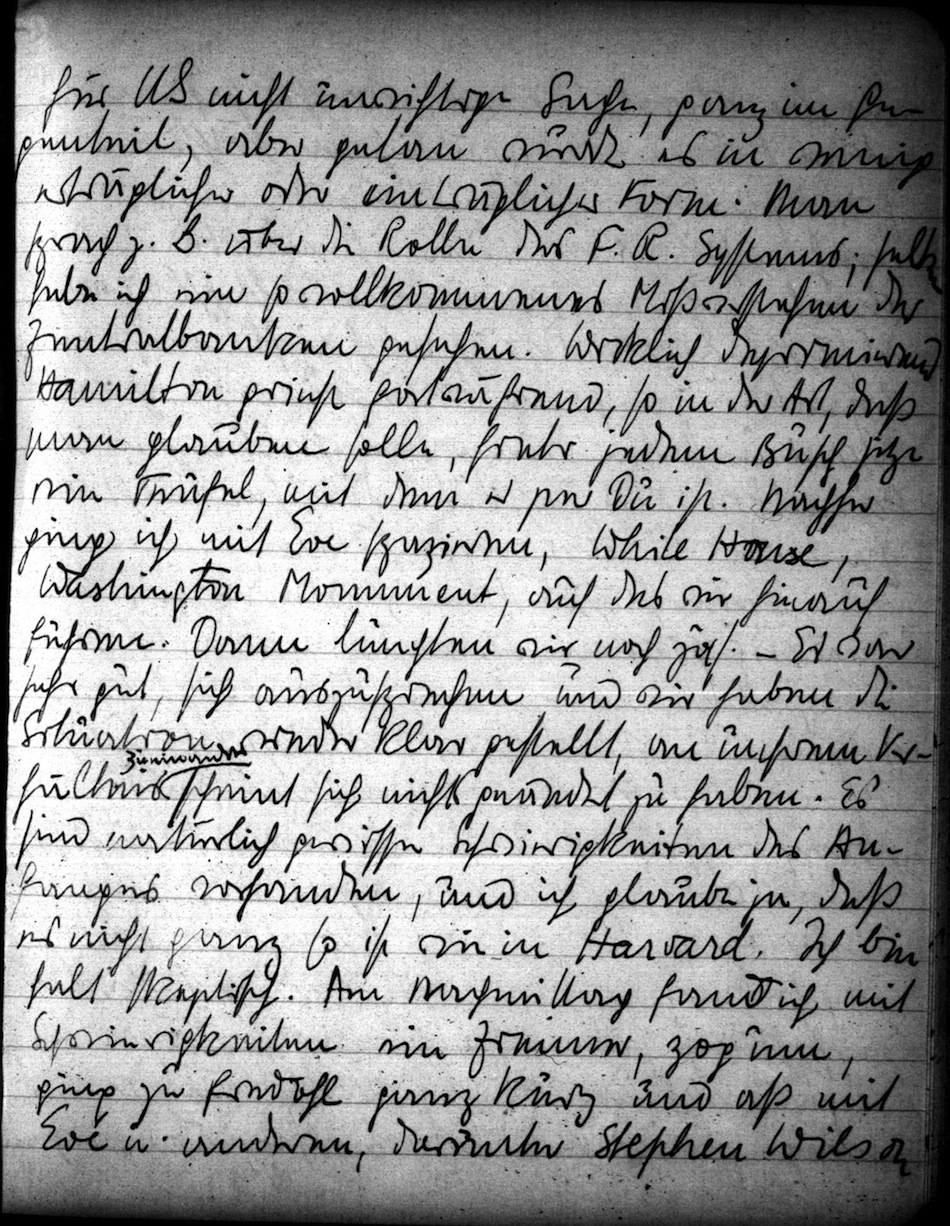 für US nicht unwichtige Sache, ganz im Ge-
genteil, aber getan wird es in wenig
erträglicher oder einträglicher Form. Man
sprach z. B. über die Rolle des F. R. Systems; selten
habe ich ein so vollkommenes Mißverstehen der
Zentralbanken gesehen. Wirklich deprimierend
Hamilton grinst fortwährend, so in der Art, daß
man glauben solle, hinter jedem Busch sitze
ein Teufel, mit dem er per Du ist. Nachher
ging ich mit Eve spazieren, White House,
Washington Monument, auf das wir hinauf
fuhren. Dann lunchten wir noch zus. – Es war
sehr gut, sich auszusprechen und wir haben die
Situation wieder klar gestellt, an unserem Ver-
hältnis zueinander scheint sich nichts geändert zu haben. Es
sind natürlich gewisse Schwierigkeiten des An-
fanges vorhanden, und ich glaube ja, daß
es nicht ganz so ist wie in Harvard. Ich bin
halt skeptisch. Am Nachmittag fand ich mit
Schwierigkeiten ein Zimmer, zog um,
ging zu ganz kurz und aß mit
Eve u. anderen, darunter Stephen Wilson